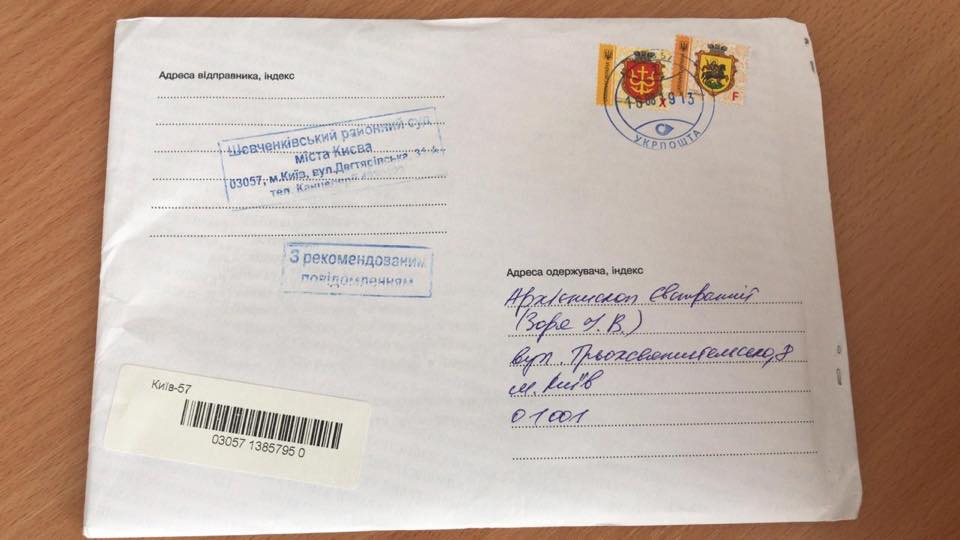 Адреса відправника, індекс
Шевченківський районний суд
міста Києва
03057, м.Київ, вул.Дегтярівська, 31-А
тел. Канцелярії
З рекомендованим
повідомленням
Київ-57
03057 1385795 0
F
X
УКРПОШТА
Адреса одержувача, індекс
Архієпископ Євстратій
(Зоря І.В.)
вул. Трьохсвятительська, 8
м. Київ
01001